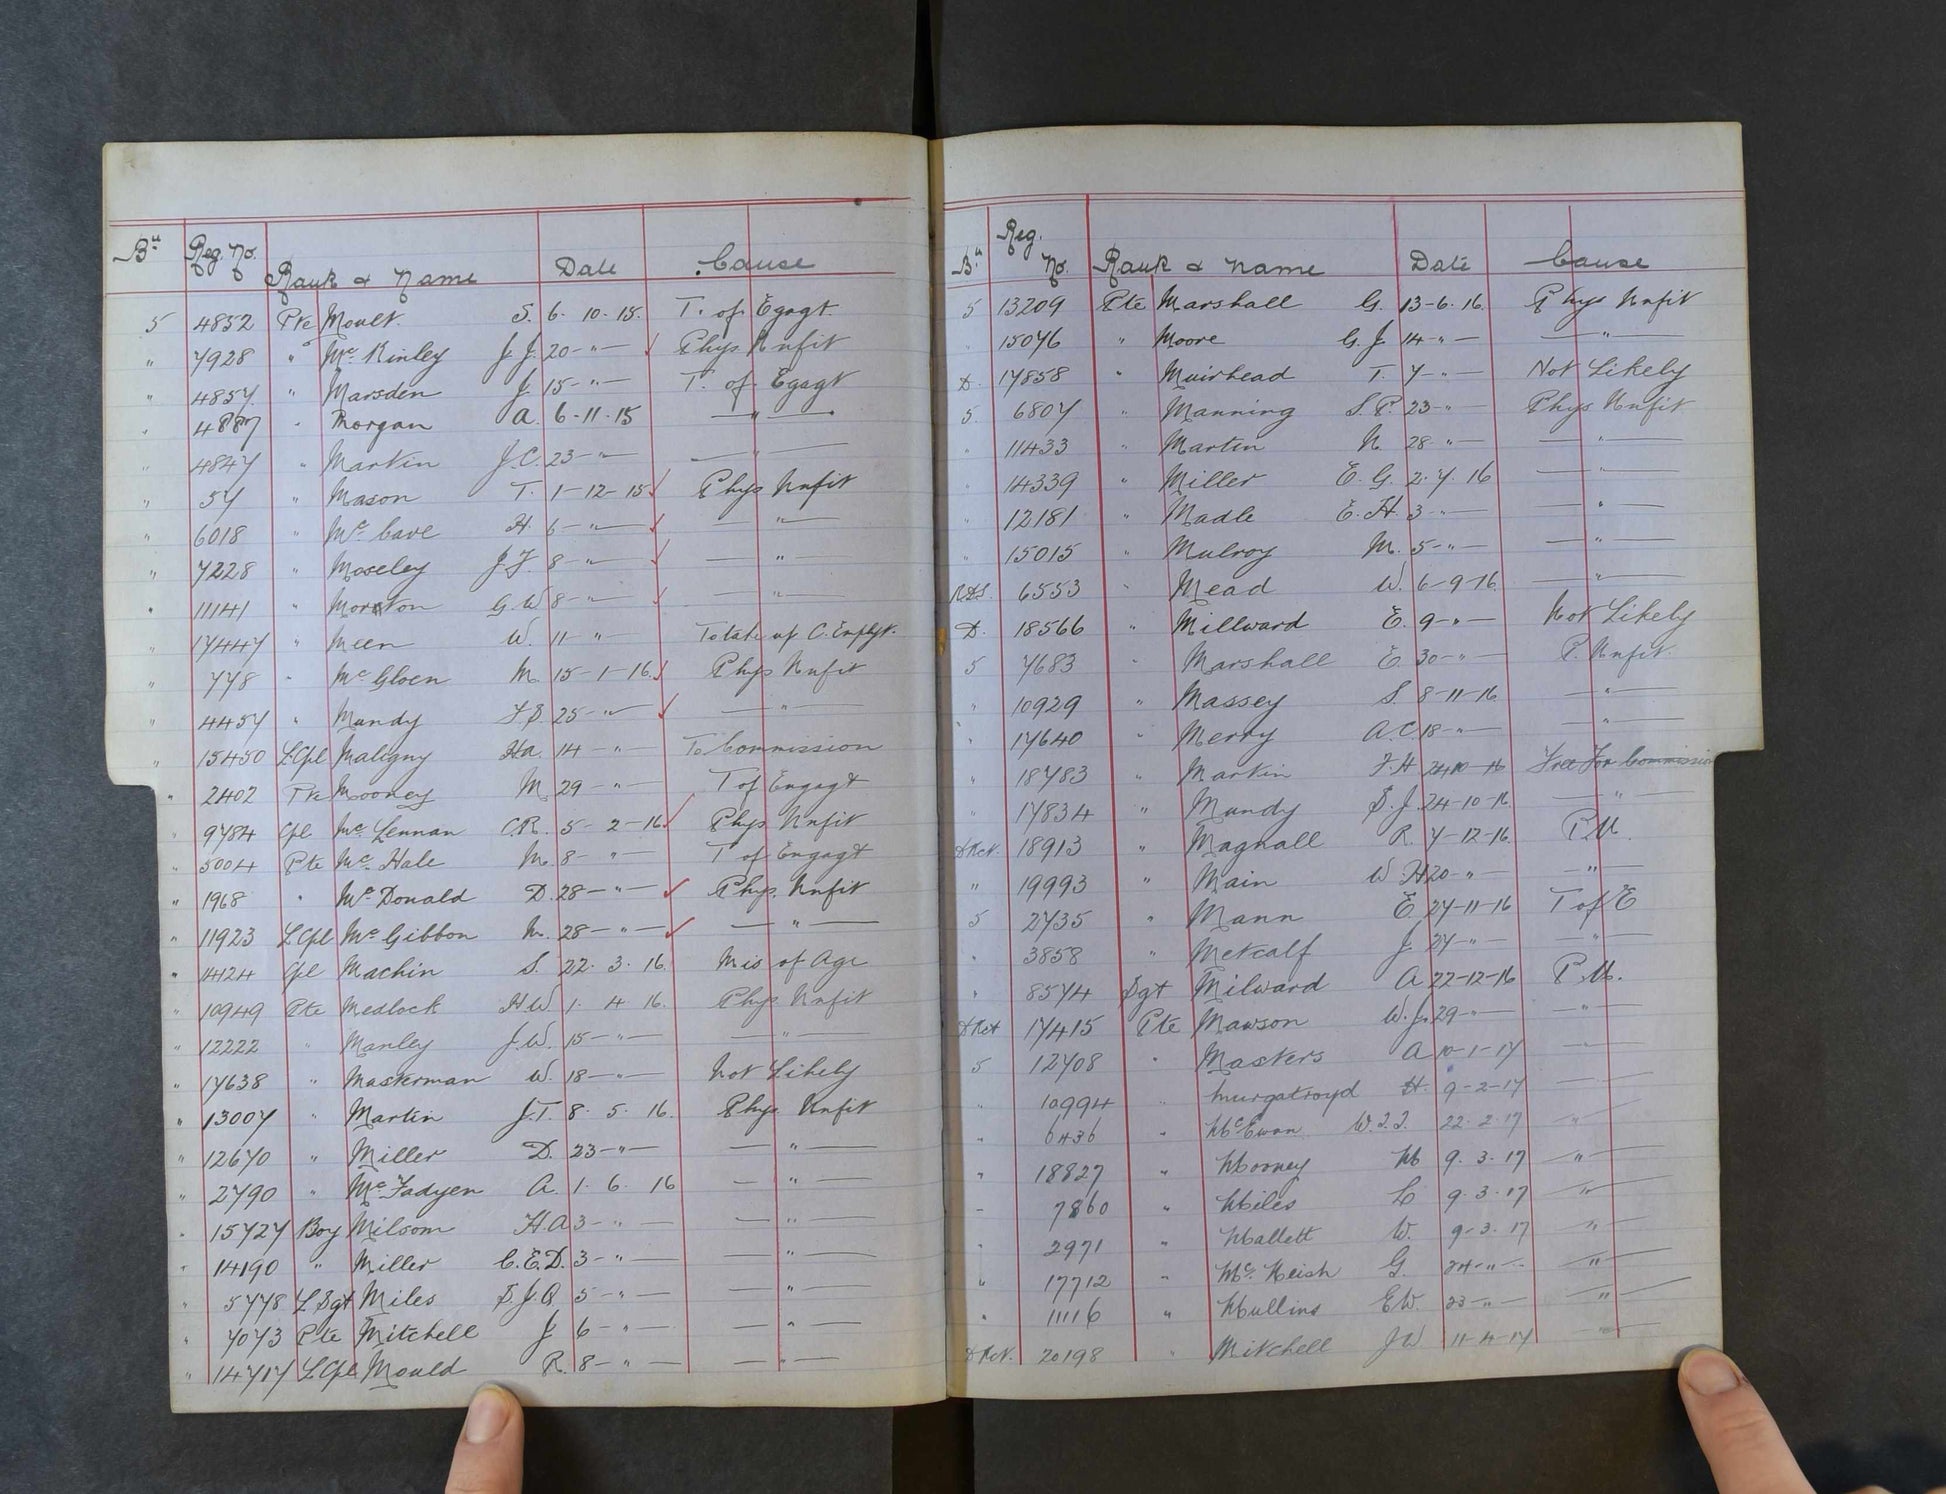 Bn Reg. No. Rank & Name Date Cause
5 4852 Pte Moult. S. 6. 10. 15. T. of Egagt.
" 7928 " Mc Kinley J.J. 20 - " - ✓ Phys Unfit
" 4857 " Marsden J. 15 - " - T. of Egagt
" 4887 " Morgan A. 6-11-15 - " -
" 4847 " Martin J.C. 23 - " - - " -
" 57 " Mason T. 1-12-15 ✓ Phys Unfit
" 6018 " Mc Cave H. 6 - " - ✓ - " -
" 7228 " Moseley J.F. 8 - " - ✓ - " -
" 11141 " Moreton G.W 8 - " - ✓ - " -
" 17447 " Meen W. 11 - " - To take up C. Emplyt.
" 778 " Mc Gloen M. 15-1-16 ✓ Phys Unfit
" 4457 " Mundy F.S. 25 - " - ✓ - " -
" 15450 L Cpl Maligny Ha. 14 - " - To Commission
" 2402 Pte Mooney M. 29 - " - T of Engagt
" 9784 Cpl Mc Lennan C.R. 5-2-16 ✓ Phys Unfit
" 5004 Pte Mc Hale M. 8 - " - T of Engagt
" 1968 " Mc Donald D. 28 - " - ✓ Phys. Unfit
" 11923 L Cpl Mc Gibbon M. 28 - " - ✓ - " -
" 14124 Cpl Machin S. 22. 3. 16. Mis of Age
" 10949 Pte Medlock H.W 1. 4 16. Phys Unfit
" 12222 " Manley J.W. 15 - " - - " -
" 17638 " Masterman W. 18 - " - Not Likely
" 13007 " Martin J.T. 8. 5. 16. Phys Unfit
" 12670 " Miller D. 23 - " - - " -
" 2790 " Mc Fadyen A. 1. 6. 16 - " -
" 15727 Boy Milsom H.A 3 - " - - " -
" 14190 " Miller C.E.D. 3 - " - - " -
" 5778 L Sgt Miles S.J.Q 5 - " - - " -
" 7073 Pte Mitchell J. 6 - " - - " -
" 14717 L Cpl Mould R. 8 - " - - " -
Bn Reg. No. Rank & Name Date Cause
5 13209 Pte Marshall G. 13-6-16. Phys Unfit
" 15076 " Moore G.J. 14 - " - - " -
D. 17858 " Muirhead T. 7 - " - Not Likely
5. 6807 " Manning S.P. 23 - " - Phys Unfit
" 11433 " Martin N 28 - " - - " -
" 14339 " Miller E.G. 2. 7. 16 - " -
" 12181 " Madle E.H. 3 - " - - " -
" 15015 " Mulroy M. 5 - " - - " -
6553 " Mead W. 6-9-16. - " -
D. 18566 " Millward E. 9 - " - Not Likely
5 7683 " Marshall E. 30 - " - P. Unfit.
" 10929 " Massey S. 8-11-16 - " -
" 17640 " Merry A.C. 18 - " - - " -
" 18783 " Martin F.H 24-10-16 Free For Commission
" 17834 " Mundy S.J. 24-10-16. - " -
D Ret. 18913 " Magnall R. 7-12-16. P.U.
" 19993 " Main W.H 20 - " - - " -
5 2735 " Mann E. 27-11-16 T of E
" 3858 " Metcalf J. 27 - " - - " -
" 8574 Sgt Milward A 22-12-16 P.U.
D Ret 17415 Pte Mawson W.J. 29 - " - - " -
5 12708 " Masters A 10-1-17 - " -
" 10994 " Murgatroyd H. 9-2-17 - " -
" 6436 " McEwan 22. 2. 17 "
" 18827 " Mooney M 9. 3. 17 - " -
" 7860 " Miles L 9. 3. 17 - " -
" 2971 " Mallett W. 9-3. 17 - " -
" 17712 " Mc Keish G. 24 - " - - " -
" 11116 " Mullins E.W. 23 - " - - " -
D Ret. 20198 " Mitchell J.W 11-4-17 - " -